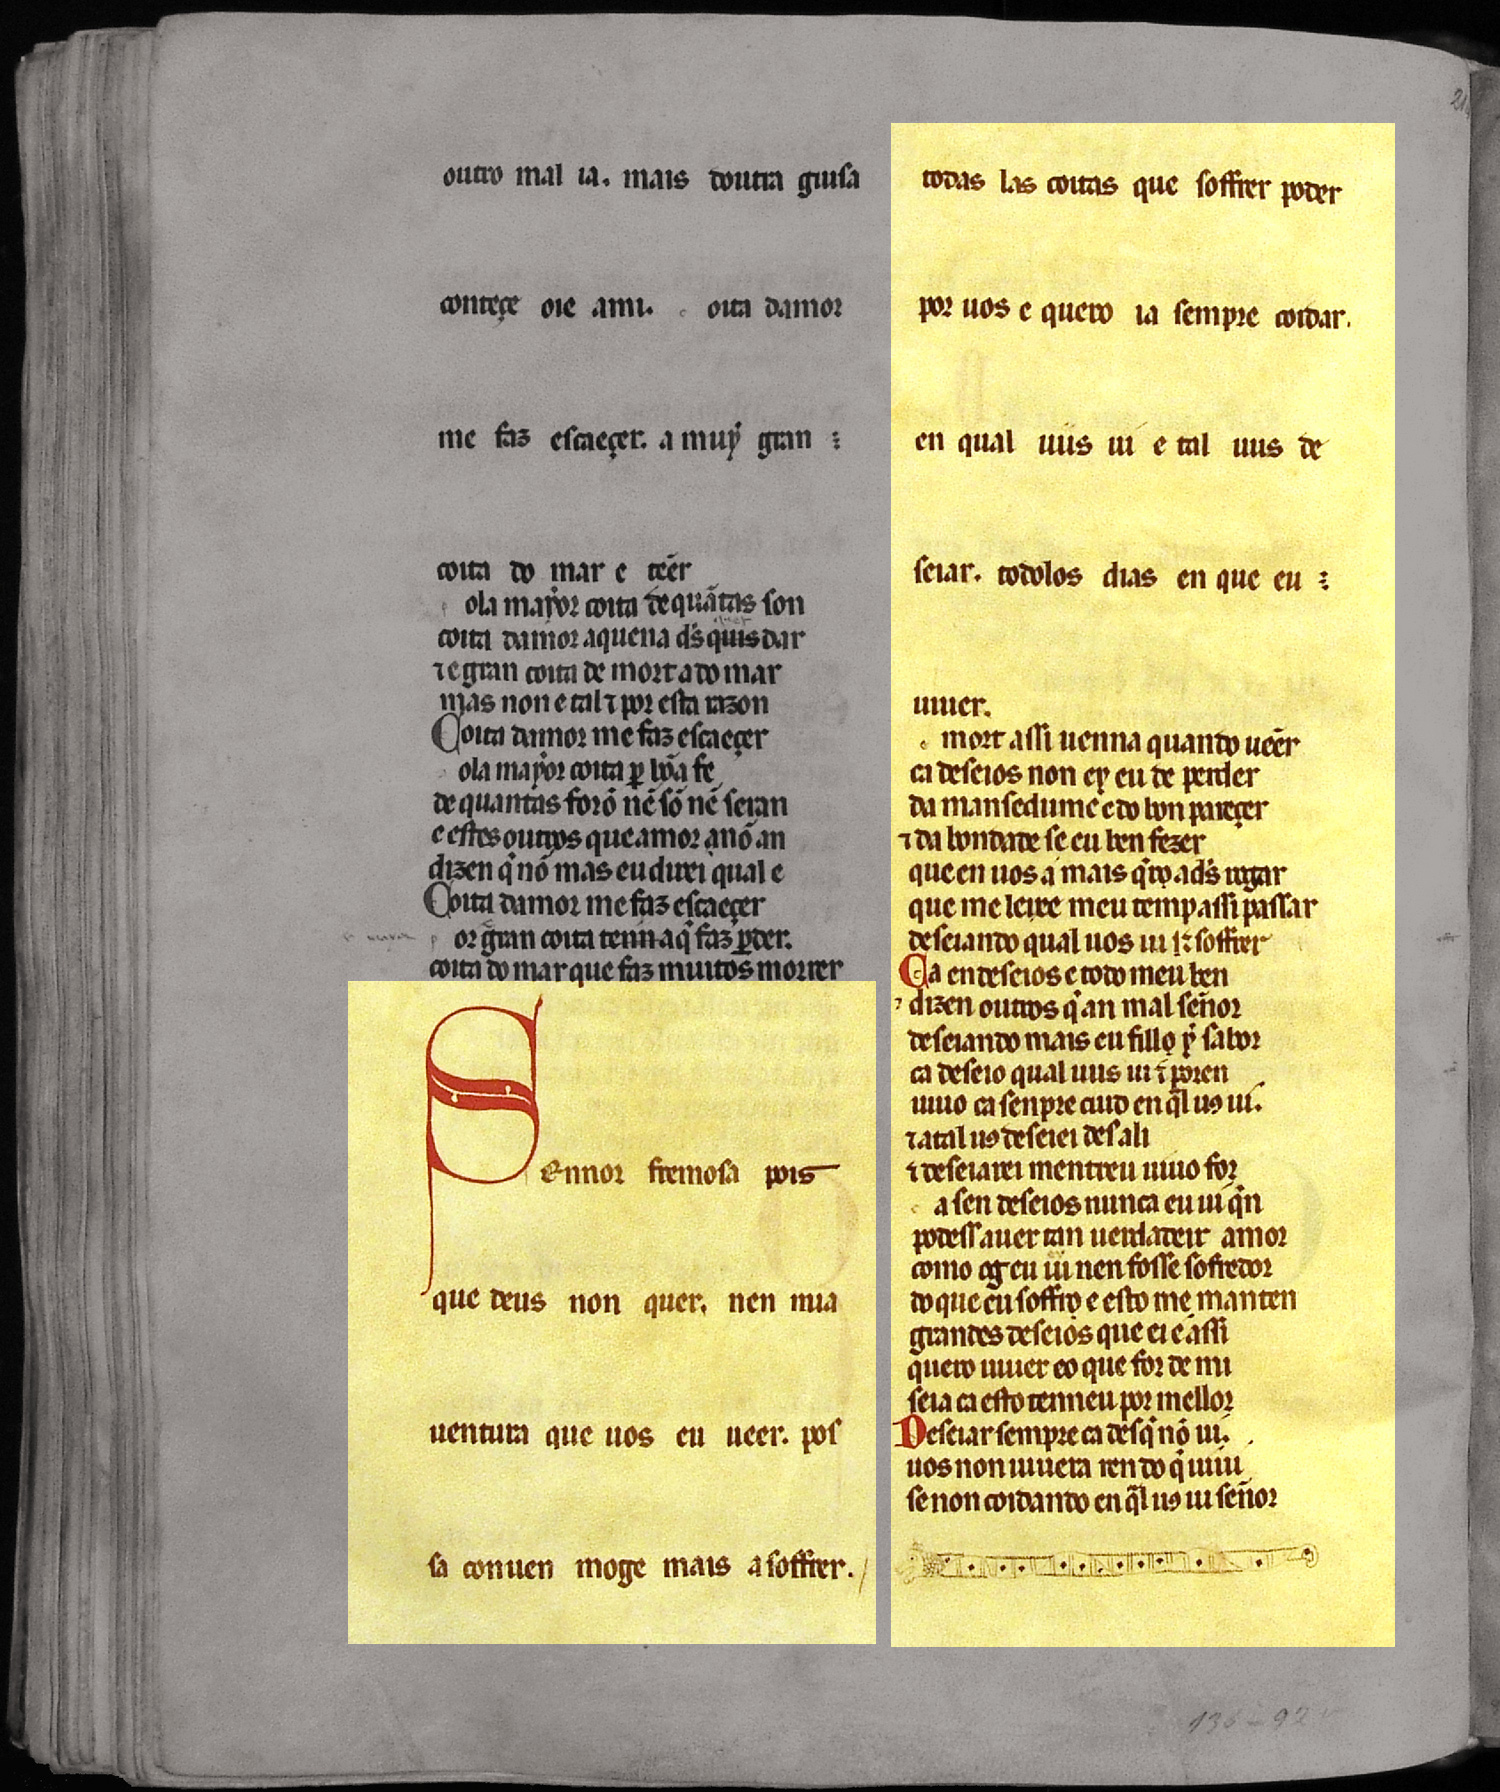 outro mal ia. mais doutra guisa
conteçe oie ami. oita damor
me faz escaeçer. a muy̾ gran
coita do mar e tẽer
ola mayor coita de quãtas son
coita damor aquena ds̃ quis dar
⁊ e gran coita de mort a do mar
mas non e tal ⁊ por esta razon
Coita damor me faz escaeçer
ola mayor coita ꝑ bõa fe
de quantas forõ nẽ sõ nẽ seran
e estes outros que amor a nõ an
dizen q̃ nõ mas eu direi qual e
Coita damor me faz escaeçer
or gran coita tenn a q̃ faz ꝑder.
coita do mar que faz muitos morrer
Sennor fremosa pois
que deus non quer. nen mia
uentura que uos eu ueer. pos
sa conuen moge mais a soffrer.
todas las coitas que soffrer poder
por uos e quero ia sempre coidar.
en qual uus ui e tal uus de
seiar. todolos dias en que eu
uiuer.
mort assi uenna quando uéer
ca deseios non ey eu de perder
da mansedume e do bon pareçer
⁊ da bondade se eu ben fezer
que en uos a mais q̃ro a ds̃ rogar
que me leixe meu temp assi passar
deseiando qual uos ui soffrer
Ca en deseios e todo meu ben
dizen outros q̃ an mal señor
deseiando mais eu fillo ẏ sabor
ca deseio qual uus ui ⁊ poren
uiuo ca senpre cuid en q̃l uꝯ ui.
⁊ a tal uꝯ deseiei des ali
⁊ deseiarei mentreu uiuo for
a sen deseios nunca eu ui q̃n
podess auer tan uerdadeir amor
como og eu ui nen fosse sofredor
do que eu soffro e esto me manten
grandes deseios que ei e assi
quero uiuer e o que for de mi
seia ca esto tenn eu por mellor
Deseiar sempre ca des q̃ nõ ui.
uos non uiuera ren do q̃ uiui
se non coidando en q̃l uꝯ ui señor